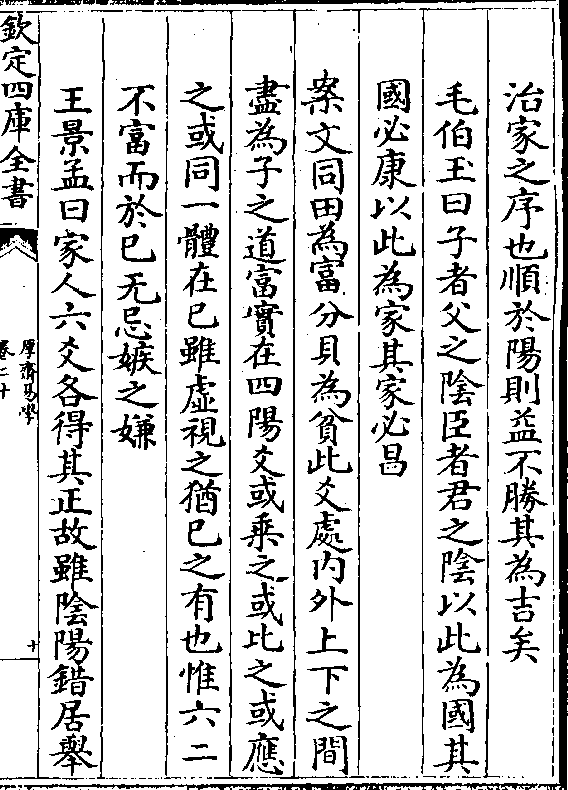 治家之序也順於陽則益不勝其為吉矣
毛伯玉曰子者父之陰臣者君之陰以此為國其
國必康以此為家其家必昌
案文同田為富分貝為貧此爻處内外上下之間
盡為子之道富實在四陽爻或乘之或比之或應
之或同一體在已雖虛視之猶已之有也惟六二
不富而於已无忌嫉之嫌
王景孟曰家人六爻各得其正故雖陰陽錯居舉
欽定四庫全書
厚齋易學
卷二十
十